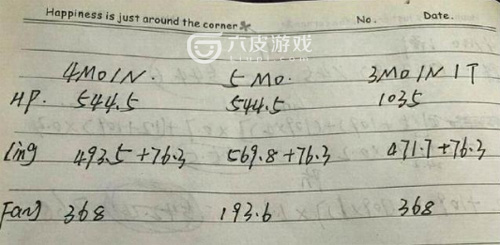 Happiness is just around the corner
No. Date.
六皮游戏
liupi.com
4MOIN. 5 MO. 3MOIN IT
HP. 544.5 544.5 1035
ling 493.5+76.3 569.8+76.3 471.7+76.3
Fang 368 193.6 368